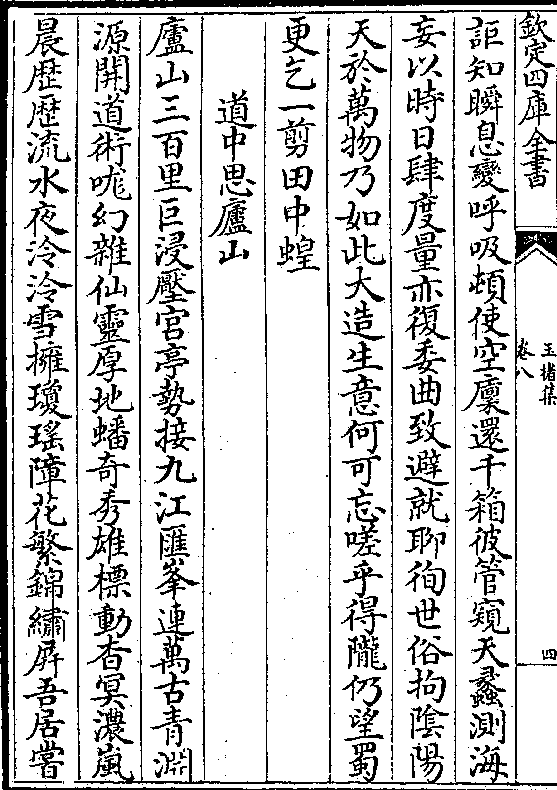 欽定四庫全書
玉楮集
卷八
四
詎知瞬息變呼吸頓使空廩還千箱彼管窺天蠡測海
妄以時日肆度量亦復委曲致避就聊徇世俗拘陰陽
天於萬物乃如此大造生意何可忘嗟乎得隴仍望蜀
更乞一剪田中蝗
道中思廬山
廬山三百里巨浸壓宫亭勢接九江匯峯連萬古青淵
源開道術咙幻雜仙靈厚地蟠奇秀雄標動杳冥濃嵐
晨歴歴流水夜泠泠雪擁瓊瑶障花繁錦繡屏吾居嘗